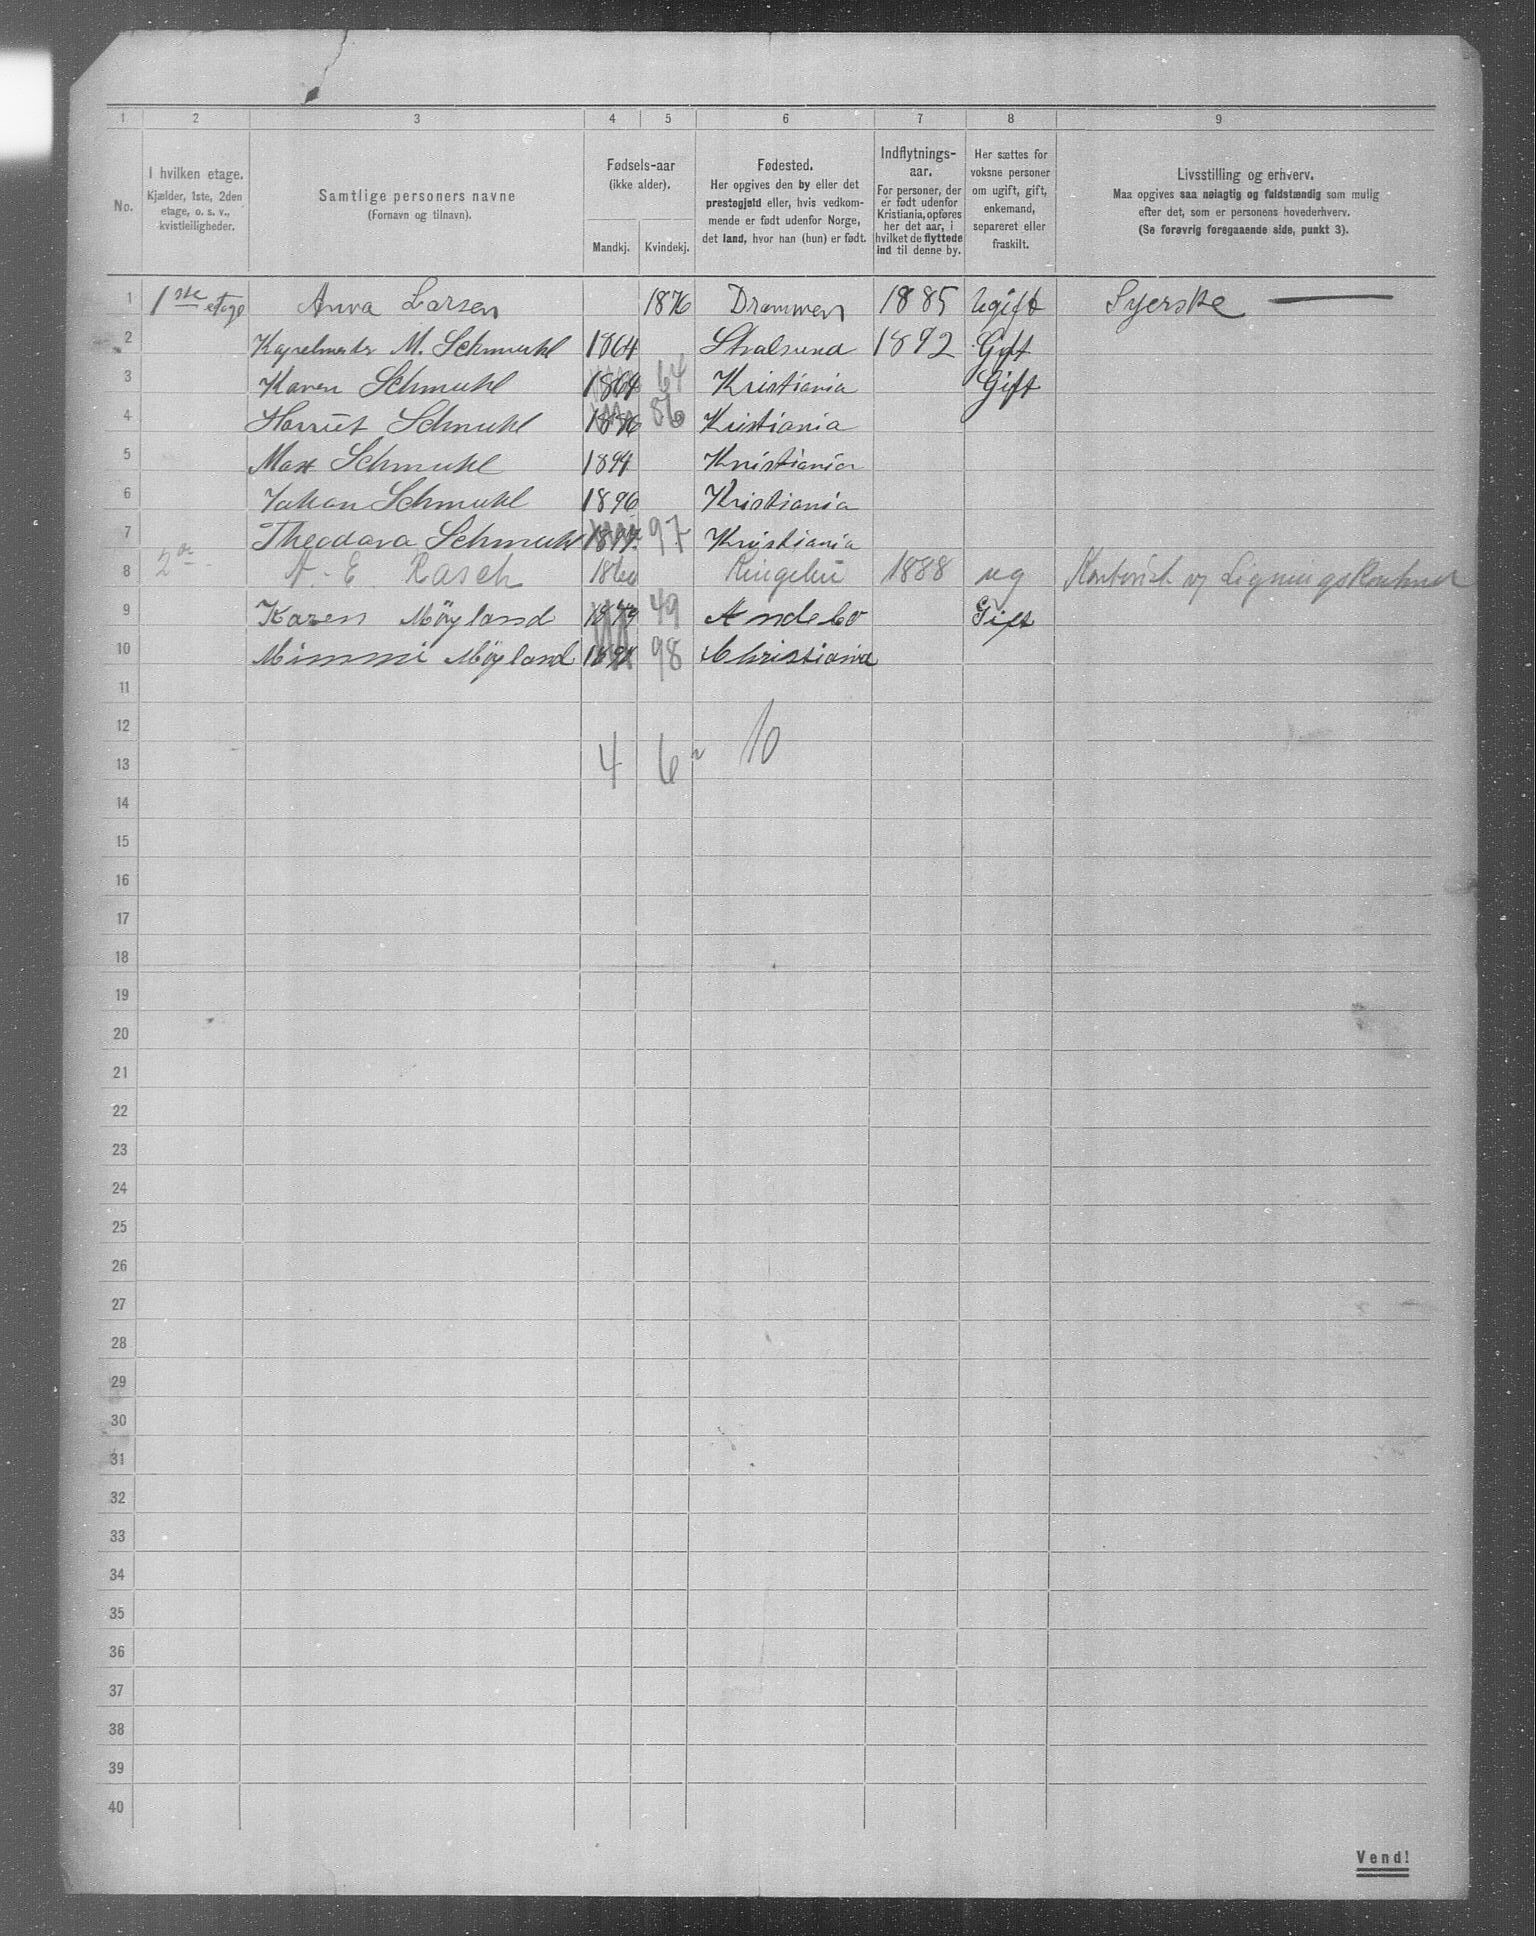 1 2 3 4 5 6 7 8 9
No.
I hvilken etage.
Kjælder, 1ste, 2den
etage, o. s. v.,
kvistleiligheder.
Samtlige personers navne
(Fornavn og tilnavn).
Fødsels-aar
(ikke alder).
Mandkj. Kvindekj.
Fødested.
Her opgives den by eller det
prestegjeld eller, hvis vedkom-
mende er født udenfor Norge,
det land, hvor han (hun) er født.
Indflytnings-
aar.
For personer, der
er født udenfor
Kristiania, opføres
her det aar, i
hvilket de flyttede
ind til denne by.
Her sættes for
voksne personer
om ugift, gift,
enkemand,
separeret eller
fraskilt.
Livsstilling og erhverv.
Maa opgives saa nøiagtig og fuldstændig som mulig
efter det, som er personens hovederhverv.
(Se forøvrig foregaaende side, punkt 3).
1 1ste etage Anna Larsen 1876 Drammen 1885 Ugift Syerske
2 Kapelmester M. Schmuhl 1864 Stralsund 1892 Gift
3 Karen Schmuhl 1864 64 Kristiania Gift
4 Harriet Schmuhl 1886 86 Kristiania
5 Max Schmuhl 1894 Kristiania
6 Johan Schmuhl 1896 Kristiania
7 Theodora Schmuhl 1897 97 Kristiania
8 2 E Rasch 1860 Ringebu 1888 ug Kontorist
9 Karen Möyland 1849 49 Andebo Gift
10 Mimmi Möyland 1898 98 Christiania
11
12
13 4 6 10
14
15
16
17
18
19
20
21
22
23
24
25
26
27
28
29
30
31
32
33
34
35
36
37
38
39
40
Vend!